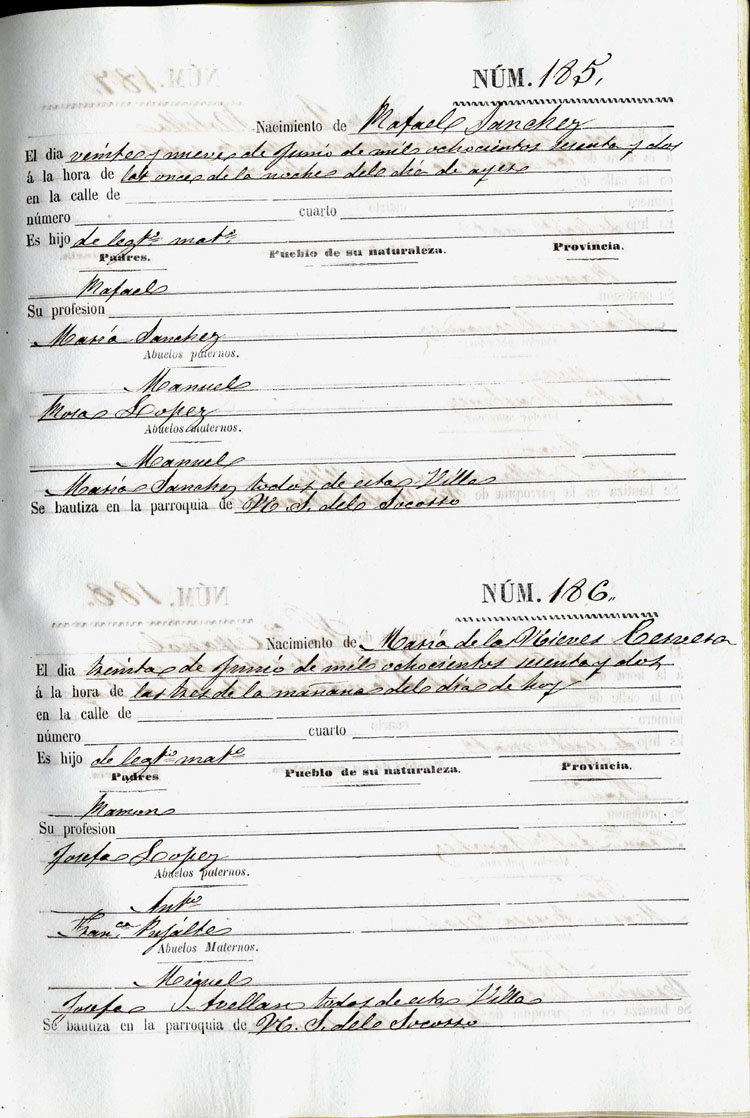 NÚM. 185.
Nacimiento de Rafael Sanchez
El dia veinte y nueve de Junio de mil ochocientos setenta y dos
á la hora de las once de la noche del dia de ayer
en la calle de
número cuarto
Es hijo de legt.º mat.º
Padres. Pueblo de su naturaleza. Provincia.
Rafael
Su profesion
María Sanchez
Abuelos paternos.
Manuel
Rosa Lopez
Abuelos maternos.
Manuel
María Sanchez todos de esta Villa
Se bautiza en la parroquia de N. S. del Socorro
NÚM. 186.
Nacimiento de María de la Nieves Cervera
El dia treinta de Junio de mil ochocientos setenta y dos
á la hora de las tres de la mañana del dia de hoy
en la calle de
número cuarto
Es hijo de legt.º mat.º
Padres Pueblo de su naturaleza. Provincia.
Ramon
Su profesion
Josefa Lopez
Abuelos paternos.
Ant.º
Fran.ca Pujalte
Abuelos Maternos.
Miguel
Josefa Avellan todos de esta Villa
Se bautiza en la parroquia de N. S. del Socorro